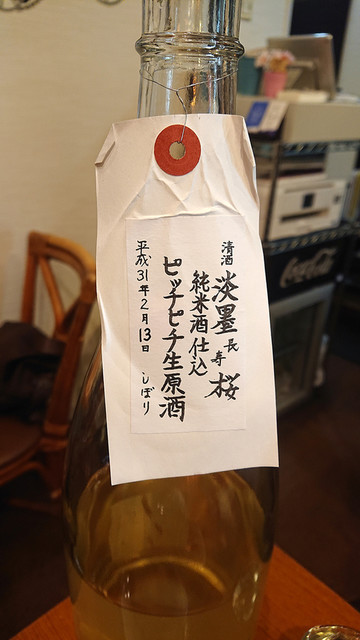 清酒
淡墨長寿桜
純米酒仕込
ピッチピチ生原酒
平成31年2月13日 しぼり
Coca-Cola